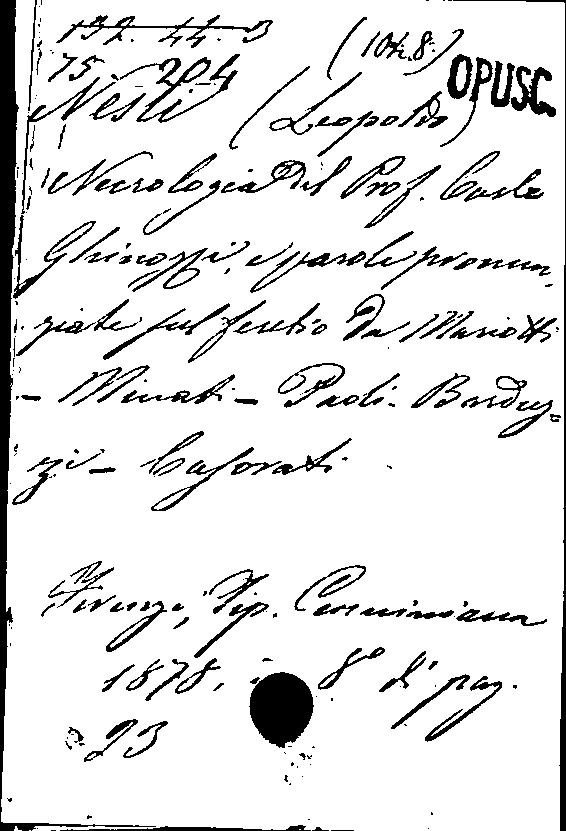 132. 44. 3
(104.8.)
75. 204
OPUSC.
Nesti (Leopoldo)
Necrologia del Prof. Carlo
Ghinozzi, e parole pronun,
ziate sul feretro da Mariotti
- Minati - Paoli - Barduz=
zi - Casorati.
Firenze, Tip. Cenniniana
1878. in 8° di pag.
23